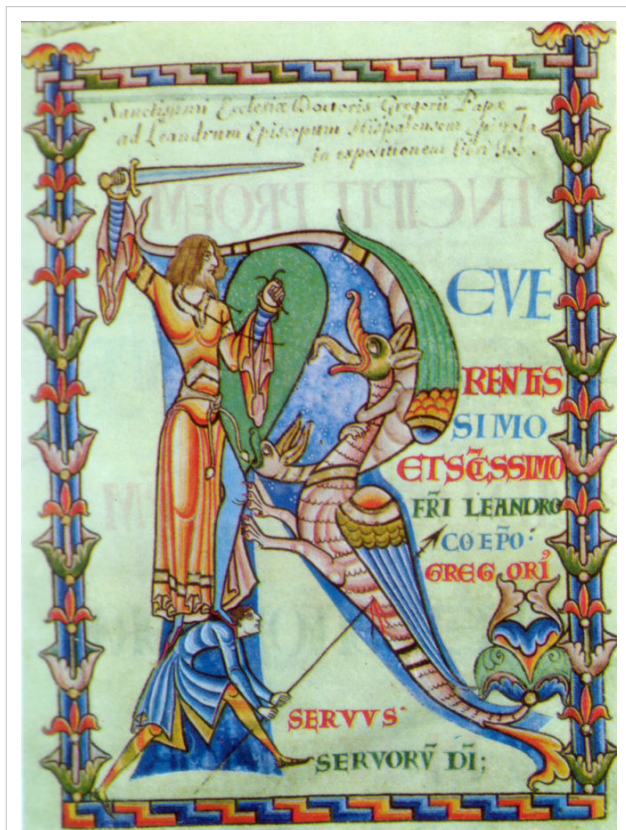 Sanctissimi Ecclesiæ Doctoris Gregorii Papæ
ad Leandrum Episcopum Hispalensem Epistola
in expositionem libri Iob.
INCIPIT PROEM
R
EVE
RENTIS
SIMO
ET SC̄ISSIMO
FR̄I LEANDRO
COEP̄O·
GREGORI⁹
SERVVS·
SERVORV̄ DI̅;